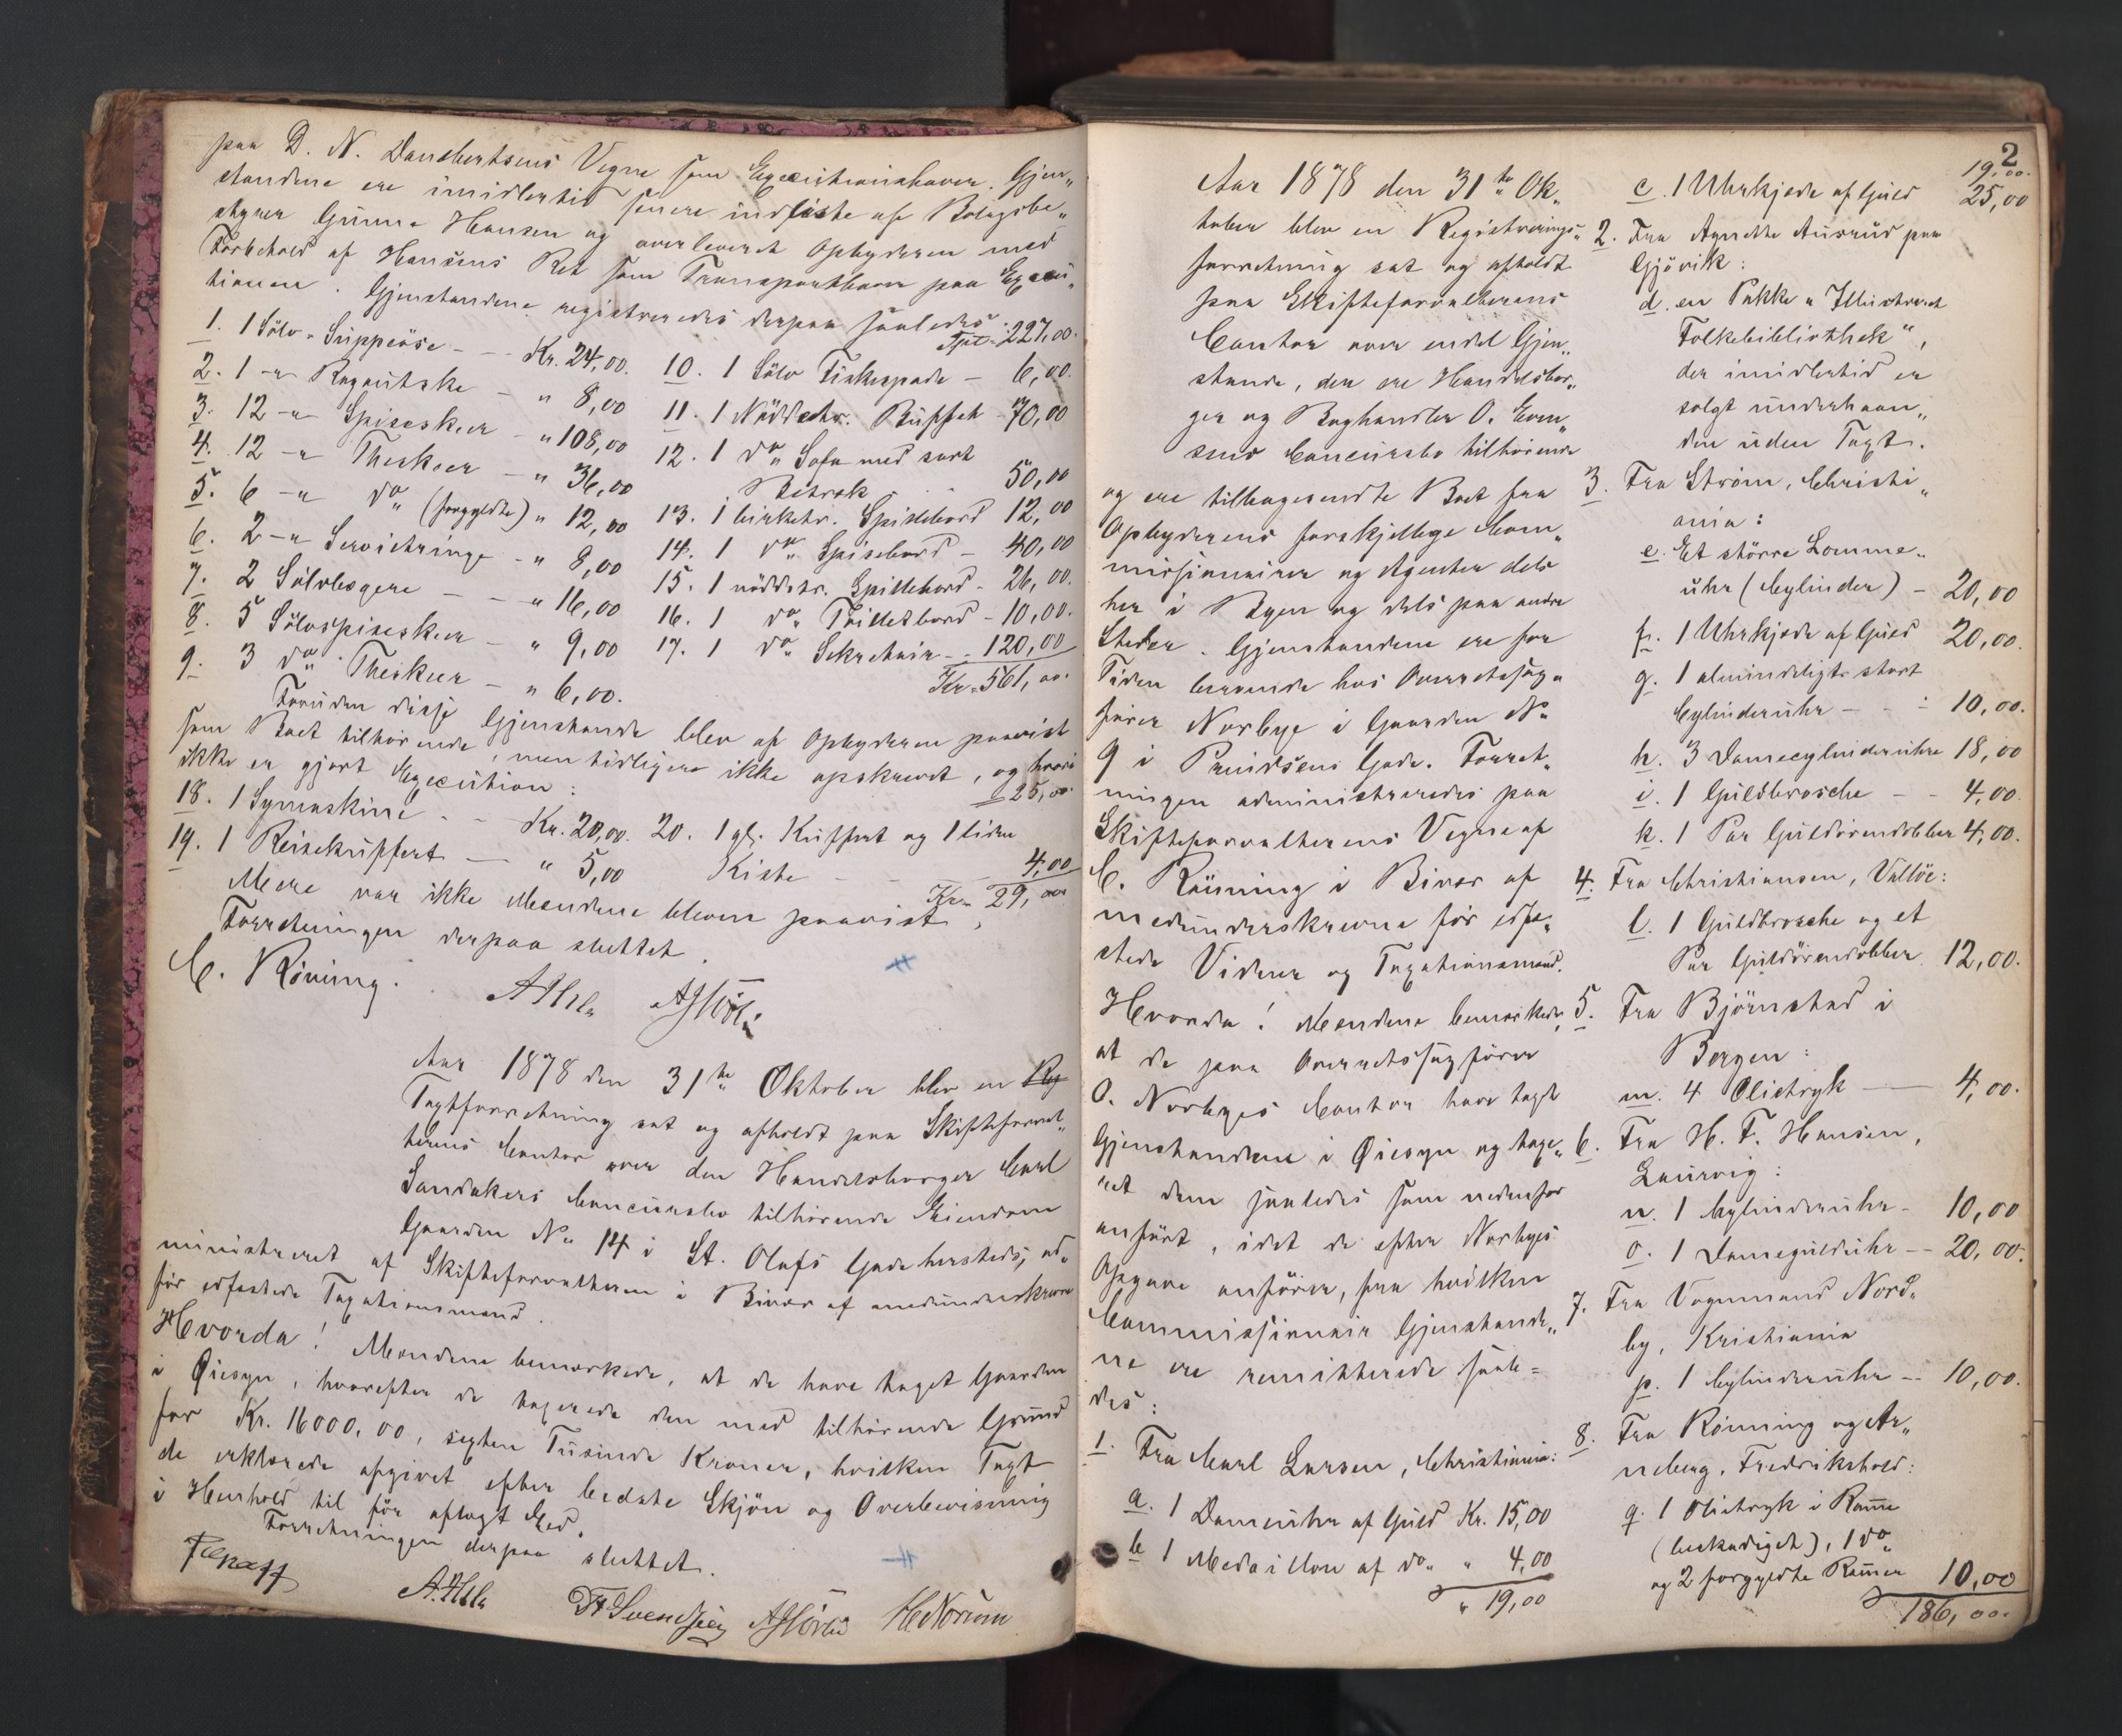 paa D. N. Danebertsens Vegne som Executionshaver. Gjen„
standene ere imidlertid senere indløste af Bologsbe„
styrer Gunne Hansen og overleveret Opbyderen med
Forbehold af Hansens Ret som Transporthaver paa Execu„
tionen. Gjenstandene registreredes derpaa saaledes:
1. 1 Sölv-Suppeöse - - Kr. 24,00.
2. 1 -"- Ragoutske - " 8,00
3. 12 -"- Spiseskeer - " 108,00
4. 12 -"- Theskeer - " 36,00
5. 6 -"- do (forgyldte) " 12,00
6. 2 -"- Servietringe - " 8,00
7. 2 Sölvbægere - - " 16,00
8. 5 Sölvspiseskeer - " 9,00
9. 3 do Theskeer - " 6,00.
Tpt. 227,00.
10. 1 Sölv Fiskespade - 6,00.
11. 1 Nöddetr. Büffet - 70,00
12. 1 do Sofa med sort
Betræk 50,00
13. 1 birketr. Spillebord 12,00
14. 1 do Spisebord - 40,00
15. 1 nöddetr. Spillebord - 26,00.
16. 1 do Toiletbord - 10,00.
17. 1 do Sekretair - 120,00
Kr. 561,00.
Foruden disse Gjenstande blev af Opbyderen paavist
som Boet tilhørende, men tidligere ikke opskrevet, og hvori
ikke er gjort Execution:
18. 1 Symaskine - - Kr. 20,00.
19. 1 Reisekuffert - " 5,00
25,00.
20. 1 gl. Kuffert og 1 liden
Kiste - - 4,00
Kr. 29,00
Mere var ikke Mændene bleven paavist.
Forretningen derpaa sluttet.
C. Röning.
Aar 1878 den 31te Oktober blev en Reg
Taxtforretning sat og afholdt paa Skifteforval„
terens Contor over den Handelsborger Carl
Sandakers Concursbo tilhørende Eiendom
Gaarden No 14 i St. Olafs Gade hersteds, ad„
ministreret af Skifteforvalteren i Bivær af medunderskrevne
før edfæstede Taxationsmænd.
Hvorda! Mændene bemærkede, at de have taget Gaarden
i Øiesyn, hvorefter de taxerede den med tilhørende Grund
for Kr. 16000,00, sexten Tusinde Kroner, hvilken Taxt
de erklærede afgivet efter bedste Skjön og Overbevisning
i Henhold til før aflagt Eed.
Forretningen derpaa sluttet.
2
Aar 1878 den 31te Ok„
tober blev en Registrerings„
forretning sat og afholdt
paa Skifteforvalterens
Contor over endel Gjen„
stande, der ere Handelsbor„
ger og Boghandler O. Even„
sens Concursbo tilhørende
og ere tilbagesendte Boet fra
Opbyderens forskjellige Com„
missionairer og Agenter dels
her i Byen og dels paa andre
Steder. Gjenstandene ere for
Tiden beroende hos Overretssag„
fører Norbye i Gaarden No
9 i Prindsens Gade. Forret„
ningen administreredes paa
Skifteforvalterens Vegne af
C. Röning i Bivær af
medunderskrevne før edfæ„
stede Vidner og Taxationsmænd.
Hvorda! Mændene bemærkede,
at de paa Overretssagfører
O. Norbyes Contor have tagt
Gjenstandene i Øiesyn og taxe„
ret dem saaledes som nedenfor
anført, idet de efter Norbyes
Opgave anfører, fra hvilken
Commissionair Gjenstande„
ne ere remitterede saale=
des:
1. Fra Carl Larsen, Christiania:
a. 1 Dameuhr af Guld Kr. 15,00
b 1 Medaillon af do " 4,00
" 19,00
19,00.
c. 1 Uhrkjede af Guld 25,00
2. Fra Agnethe Aüsrüd paa
Gjövik:
d. en Pakke "Illustreret
Folkebibliothek",
der imidlertid er
solgt underhaan„
den uden Taxt.
3. Fra Ström, Christi„
ania:
e. Et större Lomme„
uhr (Cylinder) - 20,00
f. 1 Uhrkjede af Guld 20,00.
g. 1 almindeligt stort
Cylinderuhr - - - 10,00.
h. 3 Damecylinderuhre 18,00
i. 1 Guldbroche - - 4,00.
k. 1 Par Guldörendobber 4,00.
4. Fra Christiansen, Vallöe:
l. 1 Guldbroche og et
Par Guldörendobber 12,00.
5. Fra Björnstad i
Bergen:
m. 4 Olietryk — 4,00.
6. Fra H. F. Hansen,
Laurvig:
n. 1 Cylinderuhr - 10,00
o. 1 Dameguldühr - - 20,00.
7. Fra Vognmand Nord„
by, Kristiania
p. 1 Cylinderuhr - - 10,00.
8. Fra Rönning og Ar„
neberg, Fredrikshald:
q. 1 Olietryk i Ramme
(beskadiget), 1 do
og 2 forgyldte Rammer 10,00
186,00.